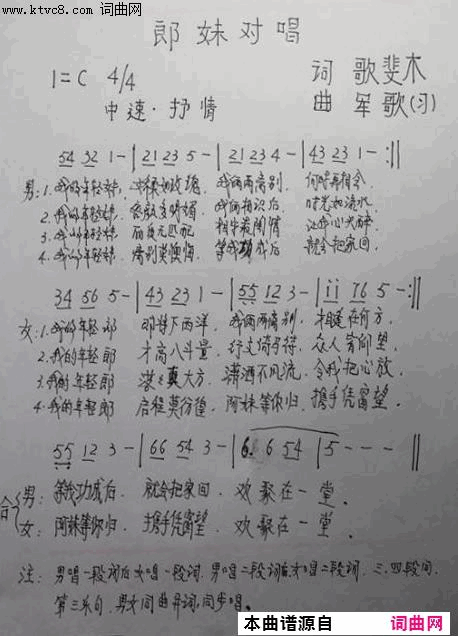 www.ktvc8.com 词曲网
郎妹对唱
1=C 4/4 词 歌斐木
中速·抒情 曲 军歌(习)
54 32 1 - | 21 23 5 - | 21 23 4 - | 43 23 1 - :||
男: 1. 我的年轻妹, 我俩两离别, 何时再相会
2. 我的年轻妹, 我俩相识后 时光如流水
3. 我的年轻妹,
4. 我的年轻妹, 等我功成后 就会把家回,
34 56 5 - | 43 23 1 - | 55 12 3 - | 11 76 5 - :||
女: 1. 我的年轻郎 郎将下西洋, 我俩两离别, 相逢在何方,
2. 我的年轻郎 才高八斗量, 众人皆仰望,
3. 我的年轻郎 大方, 潇洒不风流, 令我把心放,
4. 我的年轻郎 启程莫彷徨, 阿妹等你归, 携手凭窗望.
55 12 3 - | 66 54 3 - | 6. 6 54 | 5 - - - ||
合 男: 等我功成后, 就会把家回, 欢聚在一堂.
女: 阿妹等你归, 携手凭窗望, 欢聚在一堂.
注: 男唱一段词后女唱一段词, 男唱二段词后女唱二段词, 三.四段同,
第三乐句, 男女同曲异词, 同步唱.
本曲谱源自 词曲网